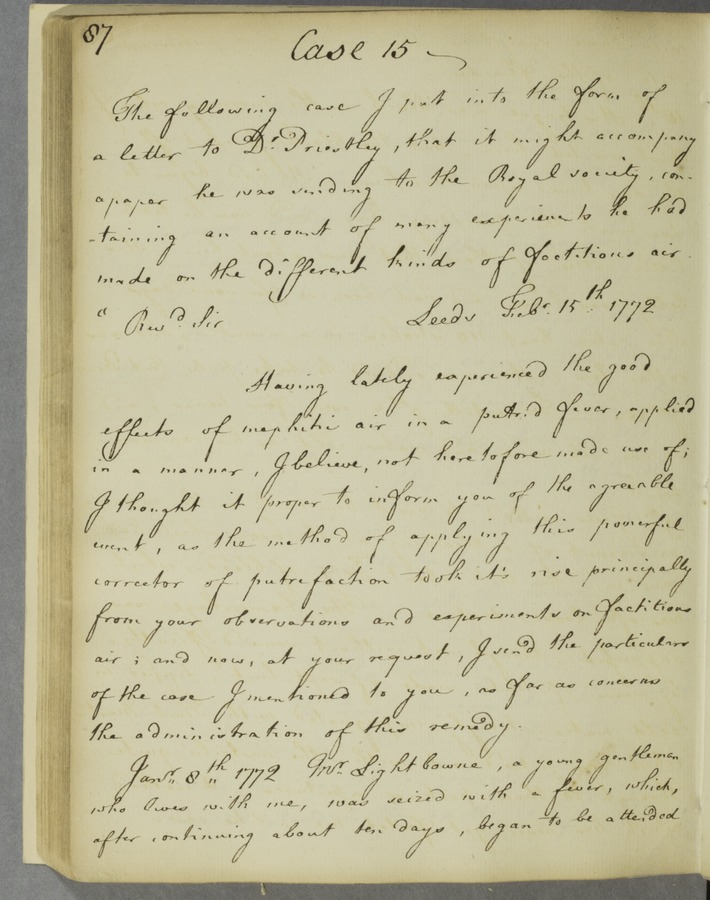 87
Case 15
The following case I put into the form of
a letter to Dr. Priestley, that it might accompany
a paper he was sending to the Royal society, con-
-taining an account of many experiments he had
made on the different kinds of factitious air.
" Revd. Sir Leeds Febr. 15th 1772
Having lately experienced the good
effects of mephitic air in a putrid fever, applied
in a manner, I believe, not heretofore made use of;
I thought it proper to inform you of the agreeable
event, as the method of applying this powerful
corrector of putrefaction took it's rise principally
from your observations and experiments on factitious
air; and now, at your request, I send the particulars
of the case I mentioned to you, as far as concerns
the administration of this remedy.
Janr. 8th 1772 Mr. Lightbowne, a young gentleman
who lives with me, was seized with a fever, which,
after continuing about ten days, began to be attended